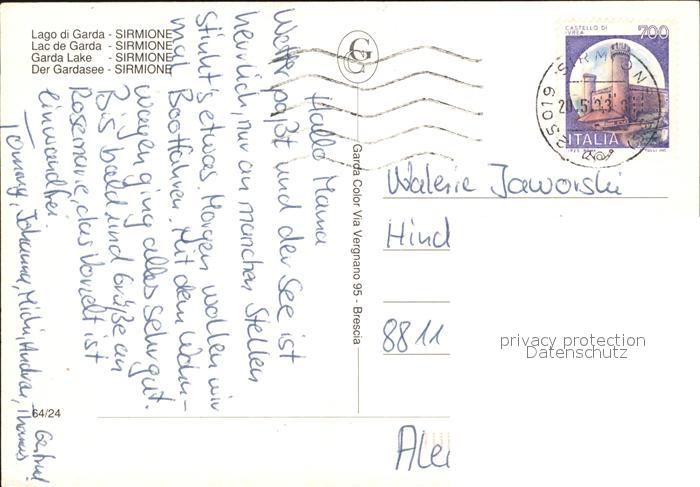 Lago di Garda - SIRMIONE
Lac de Garda - SIRMIONE
Garda Lake - SIRMIONE
Der Gardasee - SIRMIONE
CASTELLO DI
IVREA
700
ITALIA
SIRMIONE
25019
Hallo Mama
Wetter paßt und der See ist
herrlich, nur an manchen Stellen
stinkt's etwas. Morgen wollen wir
mal Bootfahren. Mit dem Wohn-
wagen ging alles sehr gut.
Bis bald und Grüße an
Rosemarie, das Vorzelt ist
einwandfrei.
Tommy, Johanna, Michi, Andrea, Thomas
Gertrud
Garda Color Via Vergnano 95 - Brescia
Walerie Jaworski
Hind
8811
Alei
privacy protection
Datenschutz
64/24